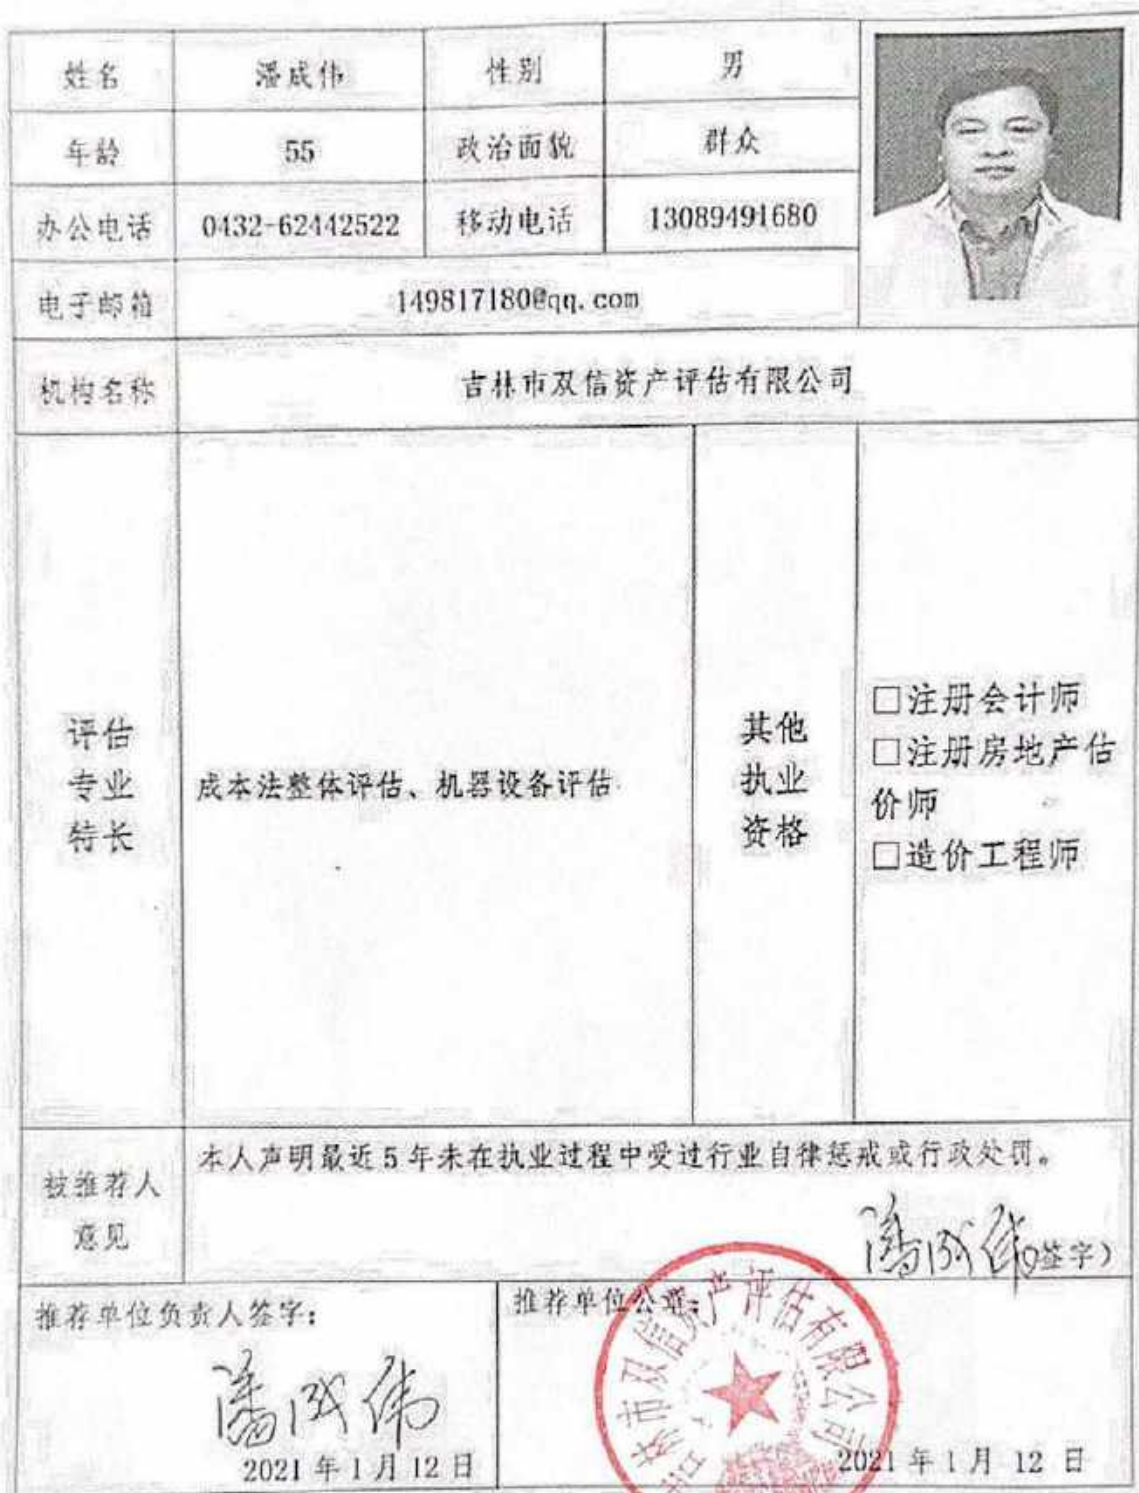 姓名 潘成伟 性别 男
年龄 55 政治面貌 群众
办公电话 0432-62442522 移动电话 13089491680
电子邮箱 149817180@qq.com
机构名称 吉林市双信资产评估有限公司
评估
专业
特长
成本法整体评估、机器设备评估
其他
执业
资格
□注册会计师
□注册房地产估
价师
□造价工程师
被推荐人
意见
本人声明最近5年未在执业过程中受过行业自律惩戒或行政处罚。
潘成伟(签字)
推荐单位负责人签字:
潘成伟
2021年1月12日
推荐单位公章:
吉林市双信资产评估有限公司
2021年1月12日